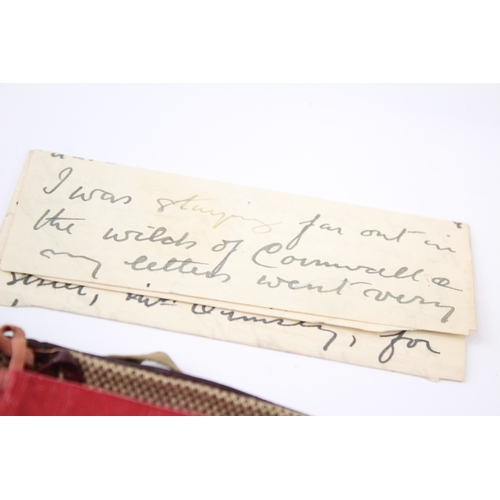 I was staying far out in
the wilds of Cornwall &
my letters went very
for